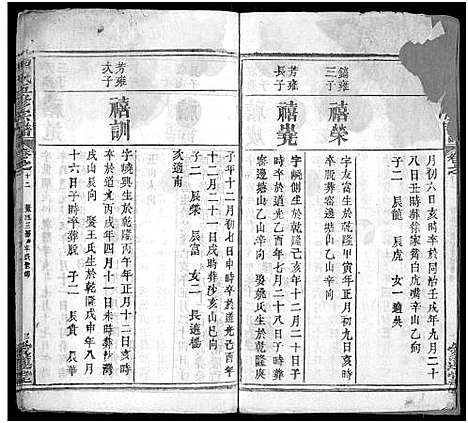 月初六日亥時卒於同治壬戌年九月二十
八日丑時葬徐家冀白虎嘴辛山乙向
子二 辰龍 辰虎 女一 適吳
鑄雍三子
禧榮
字友義生於乾隆甲寅年正月初九日亥時
卒葬窑邊塘山乙山辛向
芳雍長子
禧堯
字峣嶺生於乾隆己亥年十二月二十日戌
時卒於道光乙酉年七月二十八日子時葬
窑邊塘山乙山辛向 娶姚氏生於乾隆庚
子年十二月初七日申時卒於道光己酉年
十二月二十一日戌時葬沙亥山巳山亥向
子二 辰榮 辰富 女二 長適楊
次適南
芳雍次子
禧訓
字曉典生於乾隆丙午年正月十二日亥時
卒於道光丙戌年四月十一日未時葬沙灣
戌山辰向 娶王氏生於乾隆戊申年八月
十六日子時卒葬厫 子二 辰貴 辰華